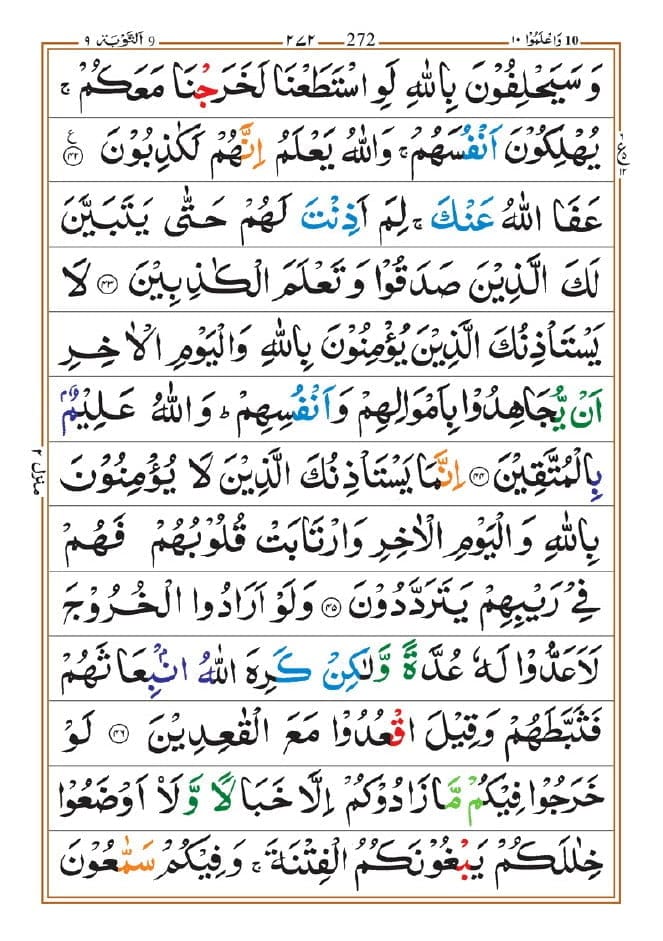 10 وَاعْلَمُوْۤا ١٠ 272 ٢٧٢ 9 اَلتَّوْبَة ٩
وَسَيَحْلِفُوْنَ بِاللّٰهِ لَوِ اسْتَطَعْنَا لَخَرَجْنَا مَعَكُمْ ۚ
يُهْلِكُوْنَ اَنْفُسَهُمْ ۚ وَاللّٰهُ يَعْلَمُ اِنَّهُمْ لَكٰذِبُوْنَ ﴿٤٢﴾ ع
عَفَا اللّٰهُ عَنْكَ ۚ لِمَ اَذِنْتَ لَهُمْ حَتّٰى يَتَبَيَّنَ
لَكَ الَّذِيْنَ صَدَقُوْا وَتَعْلَمَ الْكٰذِبِيْنَ ﴿٤٣﴾ لَا
يَسْتَاْذِنُكَ الَّذِيْنَ يُؤْمِنُوْنَ بِاللّٰهِ وَالْيَوْمِ الْاٰخِرِ
اَنْ يُّجَاهِدُوْا بِاَمْوَالِهِمْ وَاَنْفُسِهِمْ ؕ وَاللّٰهُ عَلِيْمٌۢ
بِالْمُتَّقِيْنَ ﴿٤٤﴾ اِنَّمَا يَسْتَاْذِنُكَ الَّذِيْنَ لَا يُؤْمِنُوْنَ
بِاللّٰهِ وَالْيَوْمِ الْاٰخِرِ وَارْتَابَتْ قُلُوْبُهُمْ فَهُمْ
فِيْ رَيْبِهِمْ يَتَرَدَّدُوْنَ ﴿٤٥﴾ وَلَوْ اَرَادُوا الْخُرُوْجَ
لَاَعَدُّوْا لَهٗ عُدَّةً وَّلٰكِنْ كَرِهَ اللّٰهُ انْۢبِعَاثَهُمْ
فَثَبَّطَهُمْ وَقِيْلَ اقْعُدُوْا مَعَ الْقٰعِدِيْنَ ﴿٤٦﴾ لَوْ
خَرَجُوْا فِيْكُمْ مَّا زَادُوْكُمْ اِلَّا خَبَالًا وَّلَا۟اَوْضَعُوْا
خِلٰلَكُمْ يَبْغُوْنَكُمُ الْفِتْنَةَ ۚ وَفِيْكُمْ سَمّٰعُوْنَ
منزل ٢